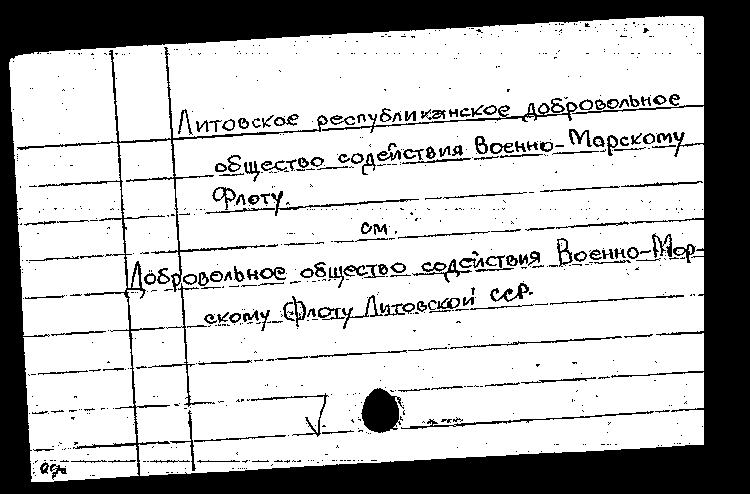 Литовское республиканское добровольное
общество содействия Военно-Морскому
Флоту.
см.
Добровольное общество содействия Военно-Мор-
скому Флоту Литовской ССР.